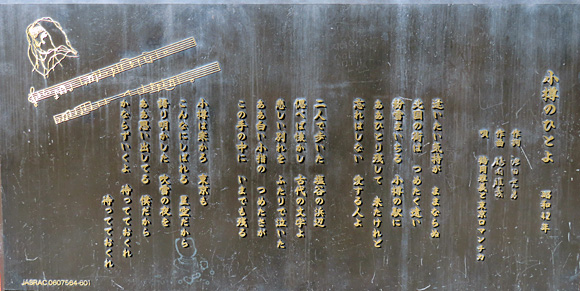 小樽のひとよ　昭和42年
作詞
作曲
唄　鶴岡雅義と東京ロマンチカ
逢いたい気持が　ままならぬ
北国の街は　つめたく遠い
粉雪まいちる　小樽の駅に
ああひとり残して　来たけれど
忘れはしない　愛する人よ
二人で歩いた　塩谷の浜辺
偲べば懐かし　古代の文字よ
悲しい別れを　ふたりで泣いた
ああ白い小指の　つめたさが
この手の中に　いまでも残る
小樽は寒かろ　東京も
こんなにしばれる　星空だから
語り明かした　吹雪の夜を
ああ思い出してる　僕だから
かならずいくよ　待ってておくれ
待ってておくれ
JASRAC 0607564-601